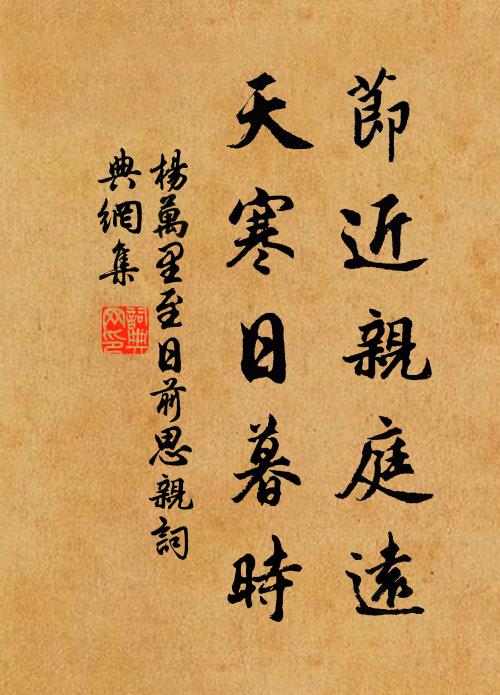 節近親庭遠
天寒日暮時
楊萬里至日前思親詞
典網集
詞典網印